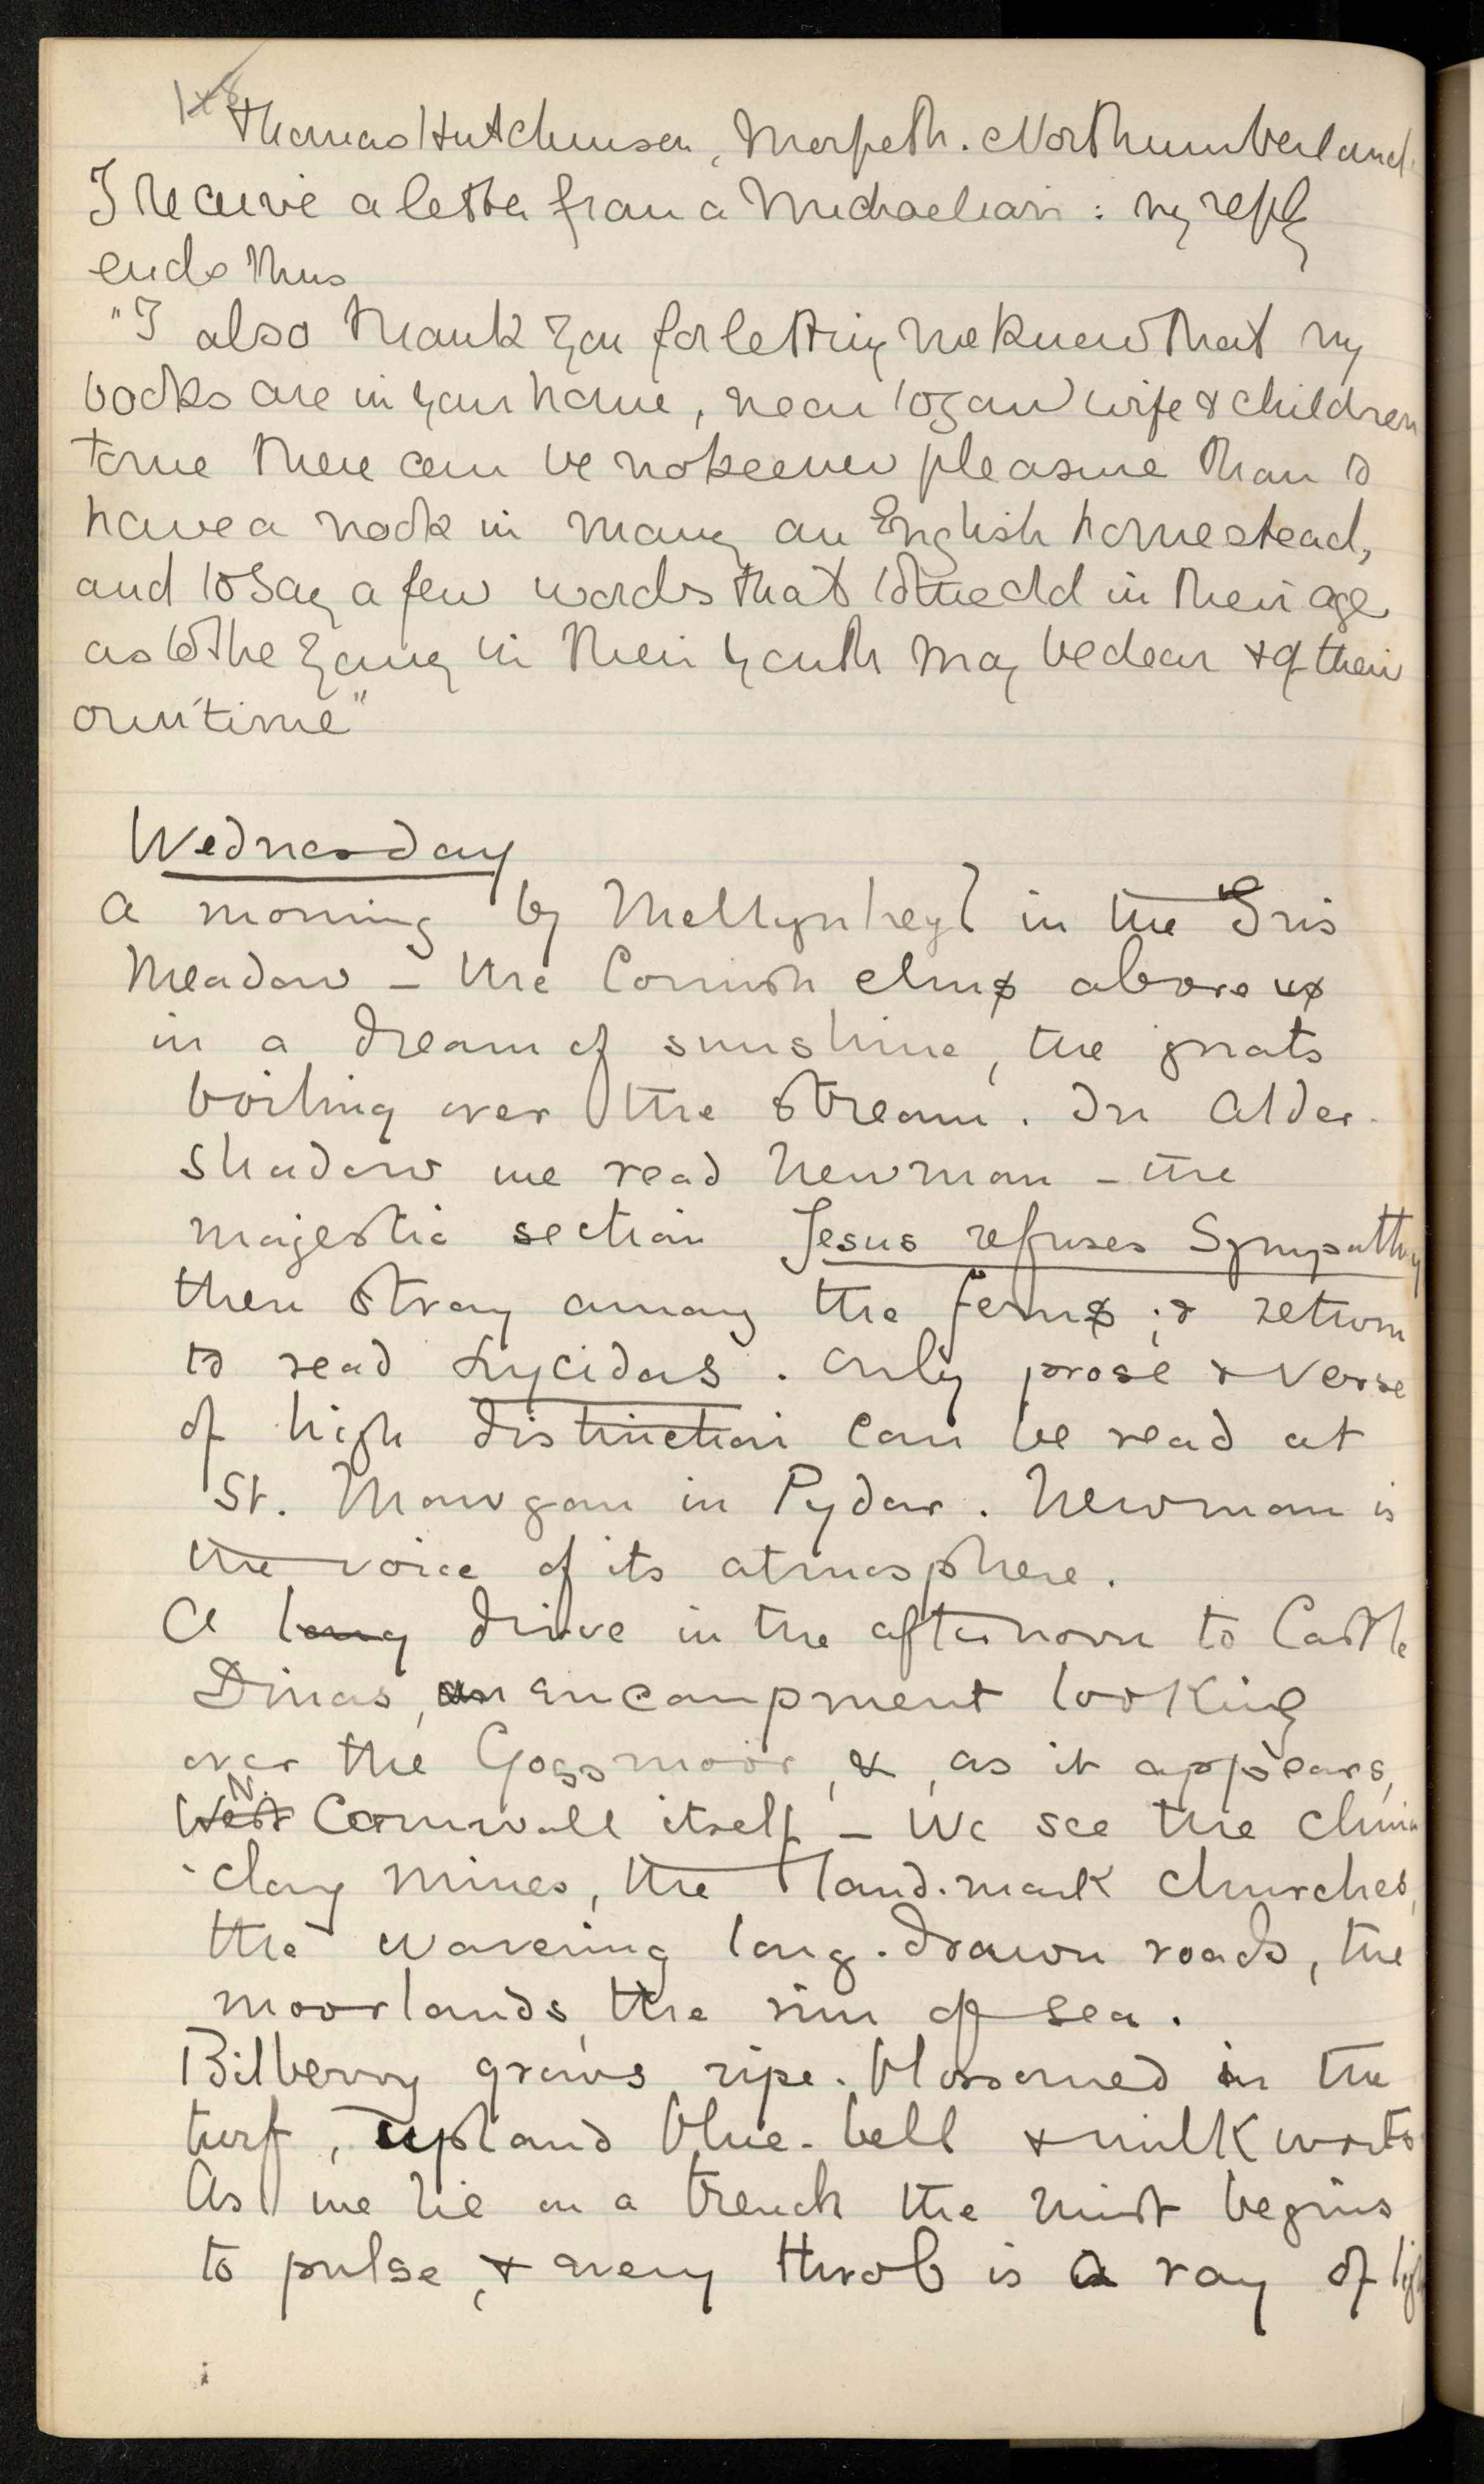 Thomas Hutchinson, Morpeth. Northumberland.
I receive a letter from a Michaelian: my reply
ends thus
"I also thank you for letting me know that my
books are in your home, near to your wife & children
to me there can be no keener pleasure than to
have a nook in many an English homestead,
and to say a few words that to the old in their age
as to the young in their youth may be dear & of their
own time"
Wednesday
A morning by Mellynheyl in the Iris
Meadow – the Cornish elms above us
in a dream of sunshine, the gnats
boiling over the stream. In Alder-
shadow we read Newman – the
majestic section Jesus refuses Sympathy
then stray among the ferns; & return
to read Lycidas. Only prose & verse
of high distinction can be read at
St. Mawgan in Pydar. Newman is
the voice of its atmosphere.
A long drive in the afternoon to Castle
Dinas, an encampment looking
over the Gossmoor, &, as it appears,
N.
West Cornwall itself – We see the china
-clay mines, the land-mark churches,
the wavering long-drawn roads, the
moorlands, the rim of sea.
Bilberry grows ripe-blossomed in the
turf, upland blue-bell & milkworts
As we lie in a trench the mist begins
to pulse, & every throb is a ray of